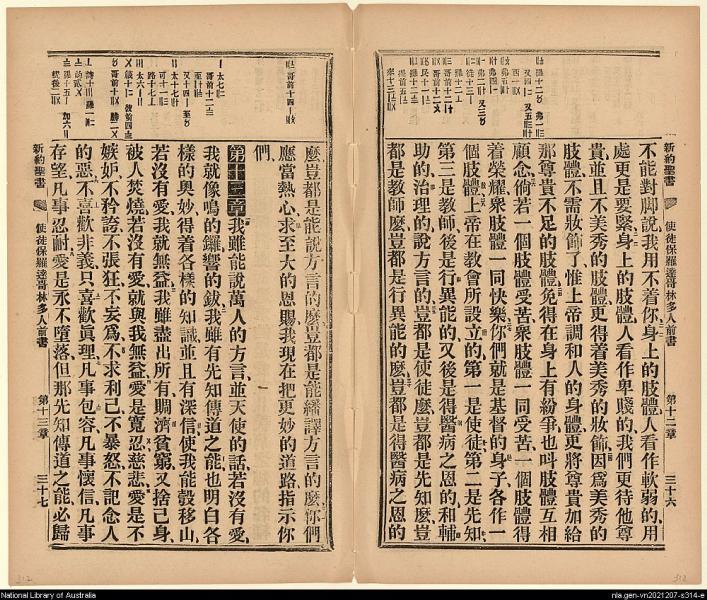 新約聖書
使徒保羅達哥林多人前書
第十二章
三十六
不能對脚說我用不着你身上的肢體人看作軟弱的用
處更是要緊身上的肢體人看作卑賤的我們更待他尊
貴並且不美秀的肢體更得着美秀的妝飾因爲美秀的
肢體不需妝飾了惟上帝調和人的身體更將尊貴加給
那尊貴不足的肢體免得在身上有紛爭也呌肢體互相
顧念倘若一個肢體受苦衆肢體一同受苦一個肢體得
着榮耀衆肢體一同快樂你們就是基督的身子各作一
個肢體上帝在教會所設立的第一是使徒第二是先知
第三是教師後是行異能的又後是得醫病之恩的和輔
助的治理的說方言的豈都是使徒麽豈都是先知麽
都是教師麽豈都是行異能的麽豈都是得醫病之恩的
麽豈都是能說方言的麽豈都是能繙譯方言的麽你們
應當熱心求至大的恩賜我現在把更妙的道路指示你
們
第十三章我雖能說萬人的方言並天使的話若沒有愛
我就像鳴的鑼響的鈸我雖有先知傳道之能也明白各
樣的奧妙得着各樣的知識並且有深信使我能彀移山
若沒有愛我就無益我雖盡出所有賙濟貧窮又捨己身
被人焚燒若沒有愛就與我無益愛是寬忍慈悲愛是不
嫉妒不矜誇不張狂不妄爲不求利己不暴怒不記念人
的惡不喜歡非義只喜歡眞理凡事包容凡事懷信凡事
存望凡事忍耐愛是永不墮落但那先知傳道之能必歸
新約聖書
使徒保羅達哥林多人前書
第十三章
三十七
312
National Library of Australia
nla.gen-vn2021207-s314-e